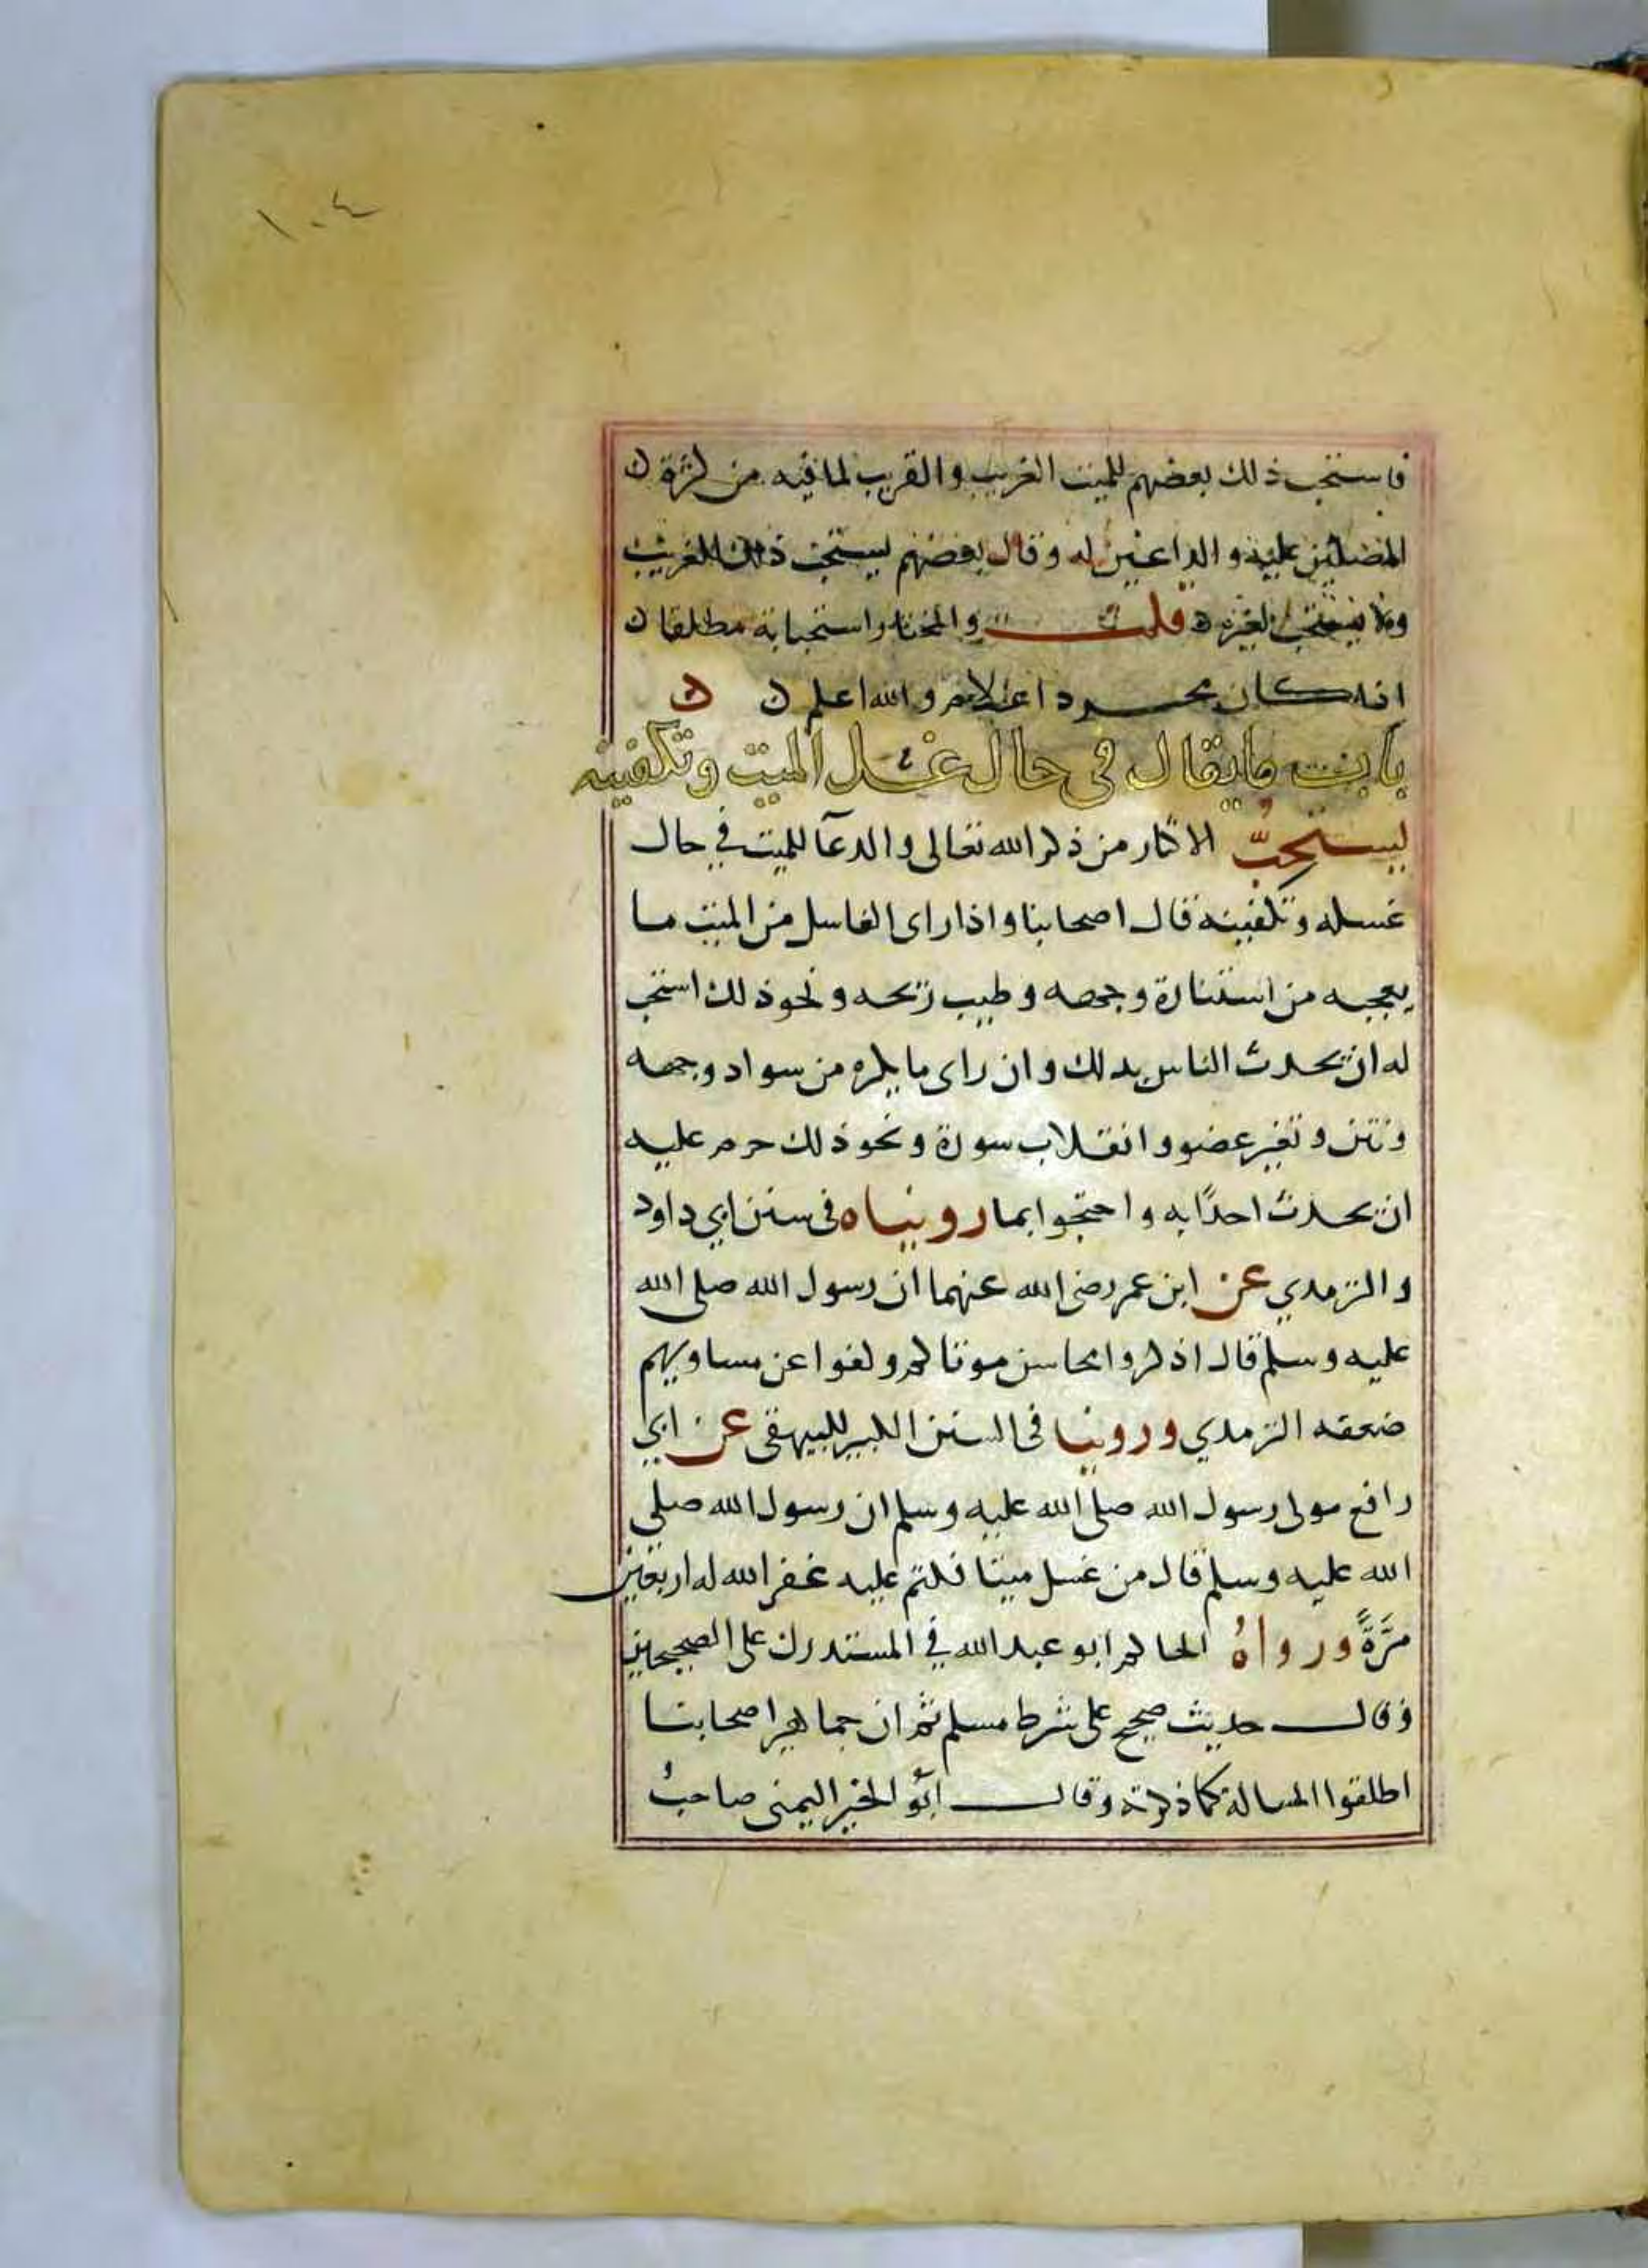 ١٠٤
فاستحب ذلك بعضهم للميت الغريب والقريب لما فيه من كثرة
المصلين عليه والداعين له وقال بعضهم يستحب ذلك للغريب
ولا يستحب لغيره قلت والمختار استحبابه مطلقا
اذا كان مجرد اعلام والله اعلم
باب ما يقال في حال غسل الميت وتكفينه
يستحبُّ الاكثار من ذكر الله تعالى والدعآ للميت في حال
غسله وتكفينه قال اصحابنا واذا راى الغاسل من الميت ما
يعجبه من استنارة وجهه وطيب ريحه ونحو ذلك استحب
له ان يحدث الناس بذلك وان راى ما يكره من سواد وجهه
ونتن وتغير عضو وانقلاب سورة ونحو ذلك حرم عليه
ان يحدث احدًا به واحتجوا بما رويناه في سنن ابي داود
والترمدي عن ابن عمر رضى الله عنهما ان رسول الله صلى الله
عليه وسلم قال اذكروا محاسن موتاكم وكفوا عن مساويهم
ضعفه الترمدي وروينا في السنن الكبير للبيهقى عن ابي
رافع مولى رسول الله صلى الله عليه وسلم ان رسول الله صلى
الله عليه وسلم قال من غسل ميتا فكتم عليه غفر الله له اربعين
مَرَّةً ورواهُ الحاكم ابو عبد الله في المستدرك على الصحيحين
وقال حديث صحيح على شرط مسلم ثم ان جماهير اصحابنا
اطلقوا المسالة كما ذكرته وقال ابُو الخير اليمنى صاحبُ